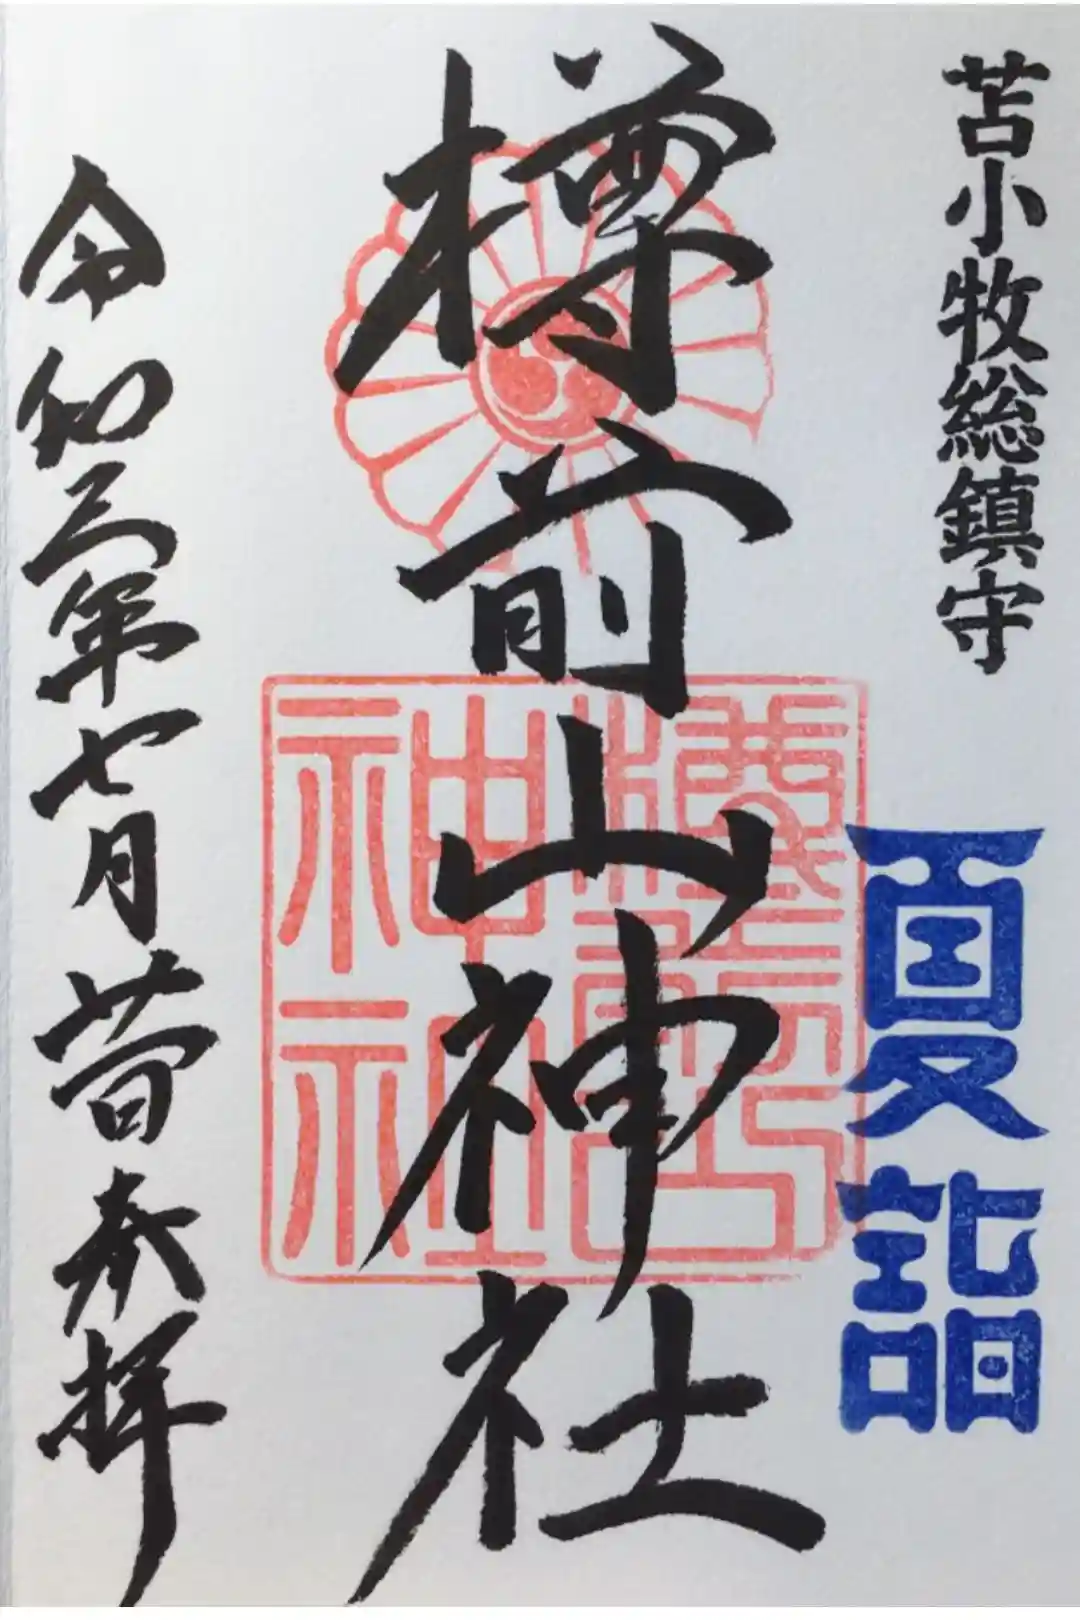 苫小牧総鎮守
夏詣
樽前山神社
樽前山
神社
令和三年七月廿日奉拝